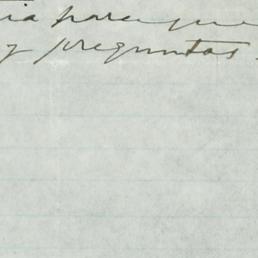 ia para que
y preguntas.